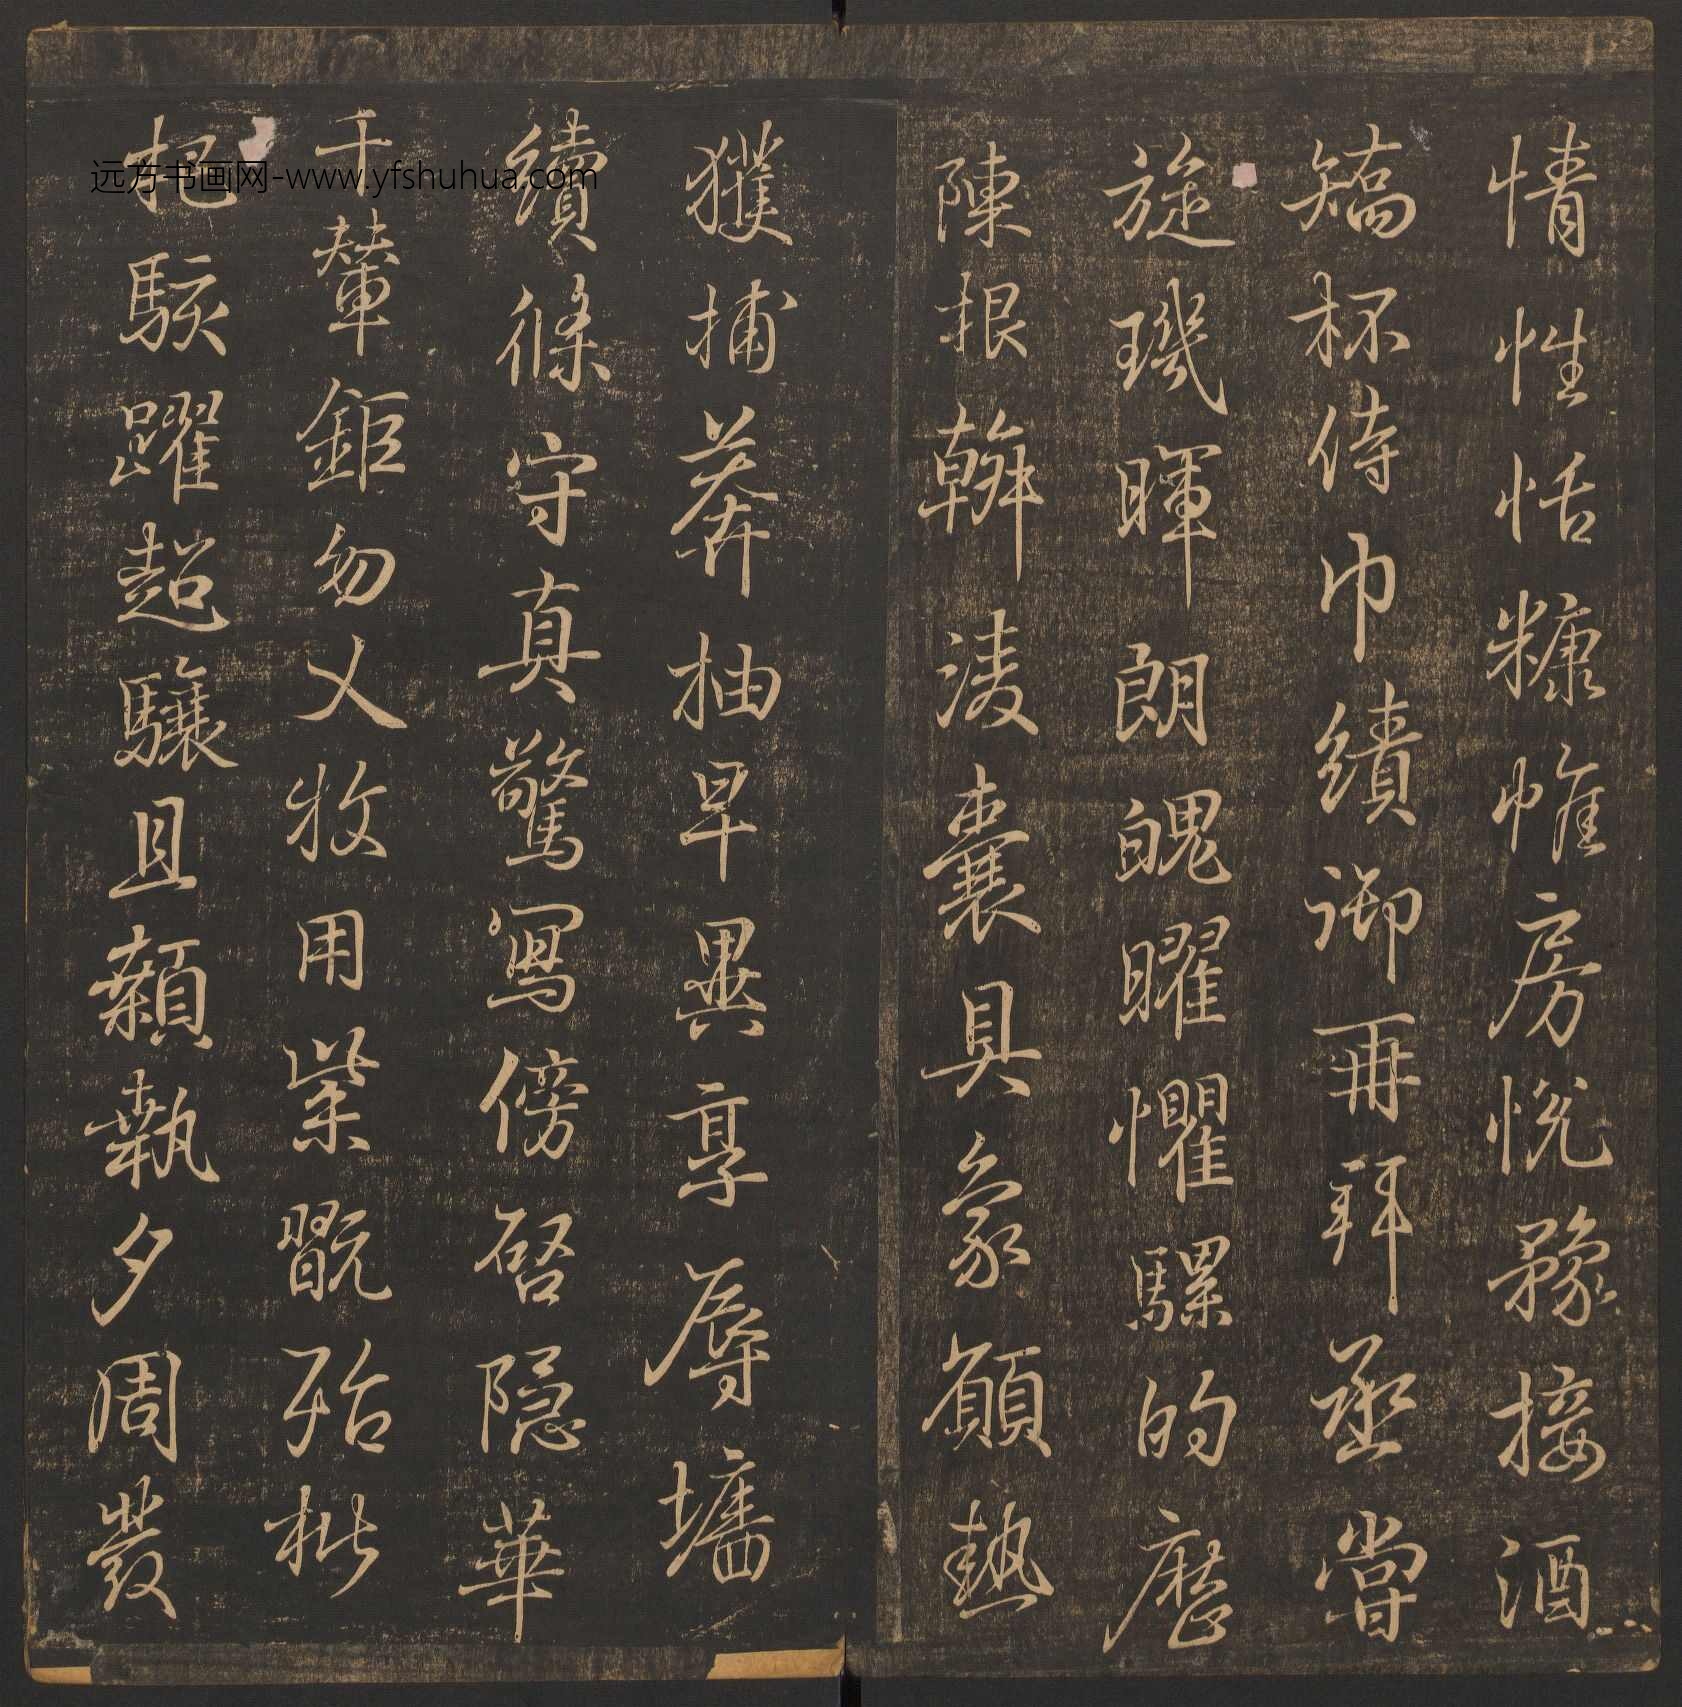 情性恬糠帷房悅豫接酒
矯杯侍巾績御再拜丞嘗
旋璣暉朗魄曜懼騾的歷
陳根斡凌囊具象願熱
獲捕莽抽早異享辱墻
續條守真驚寫傍啓隱華
千輦鉅勿乂牧用紫翫殆枇
杷駭躍超驤且顙執夕周發
远方书画网-www.yfshuhua.com